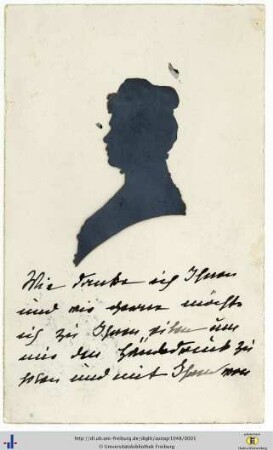 Wie danke ich Ihnen
und wie gerne möchte
ich zu Ihnen eilen um
mir den Händedruck zu
und mit Ihnen von
http://dl.ub.uni-freiburg.de/diglit/autogr1048/0001
© Universitätsbibliothek Freiburg